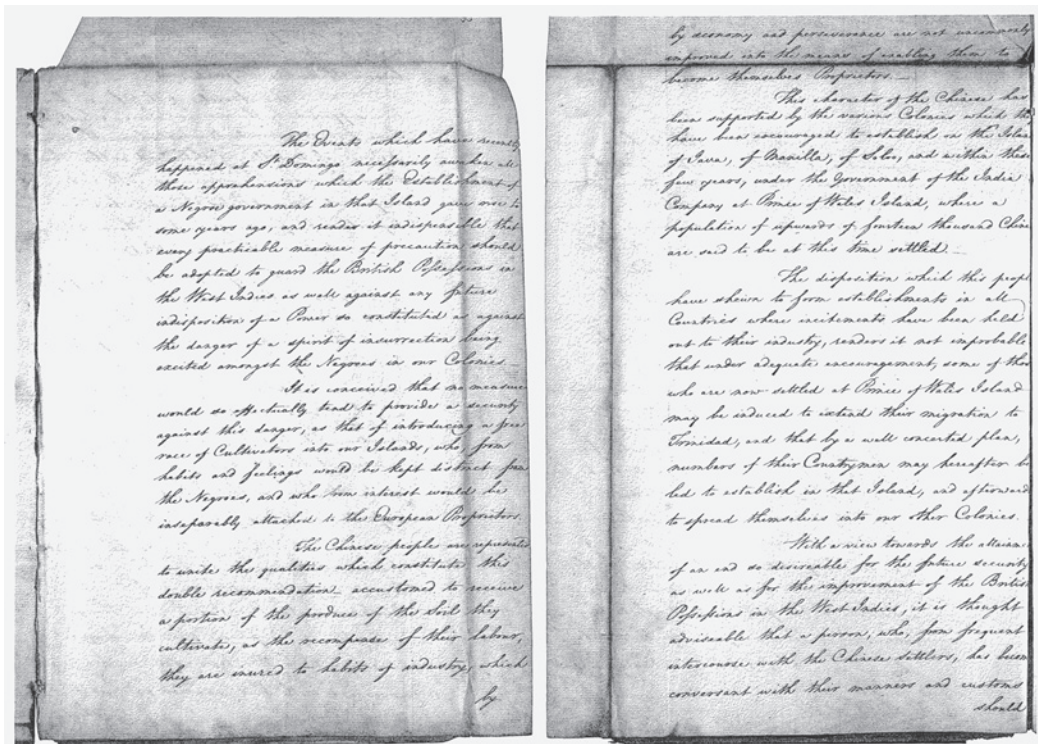 The Events which have recently
happened at St Domingo necessarily awaken all
those apprehensions which the Establishment of
a Negroe government in that Island gave rise to
some years ago, and render it indispensible that
every practicable measure of precaution should
be adopted to guard the British Possessions in
the West Indies as well against any future
indisposition of a Power so constituted as against
the danger of a spirit of insurrection being
excited amongst the Negroes in our Colonies.
It is conceived that no measure
would so effectually tend to provide a security
against this danger, as that of introducing a free
race of Cultivators into our Islands, who, from
habits and feelings would be kept distinct from
the Negroes, and who from interest would be
inseparably attached to the European Proprietors.
The Chinese people are represented
to unite the qualities which constitute this
double recommendation_ accustomed to receive
a portion of the produce of the Soil they
cultivate, as the recompense of their labour,
they are inured to habits of industry, which
by
by economy and perseverance are not uncommonly
improved into the means of enabling them to
become themselves Proprietors._
This character of the Chinese has
been supported by the various Colonies which
have been encouraged to establish on the
of Java, of Manilla, of Soloo, and within these
few years, under the Government of the India
Company at Prince of Wales Island, where a
population of upwards of fourteen thousand
are said to be at this time settled._
The disposition which this
have shewn to form establishments in all
Countries where incitements have been held
out to their industry, renders it not improbable
that under adequate encouragement, some of
who are now settled at Prince of Wales Island
may be induced to extend their migration to
Trinidad, and that by a well concerted plan,
numbers of their Countrymen may hereafter
led to establish in that Island, and
to spread themselves into our other Colonies.
With a view towards the
of an end so desireable for the future security
as well as for the improvement of the British
Possessions in the West Indies, it is thought
adviseable that a person, who, from frequent
intercourse with the Chinese settlers, has
conversant with their manners and customs
should